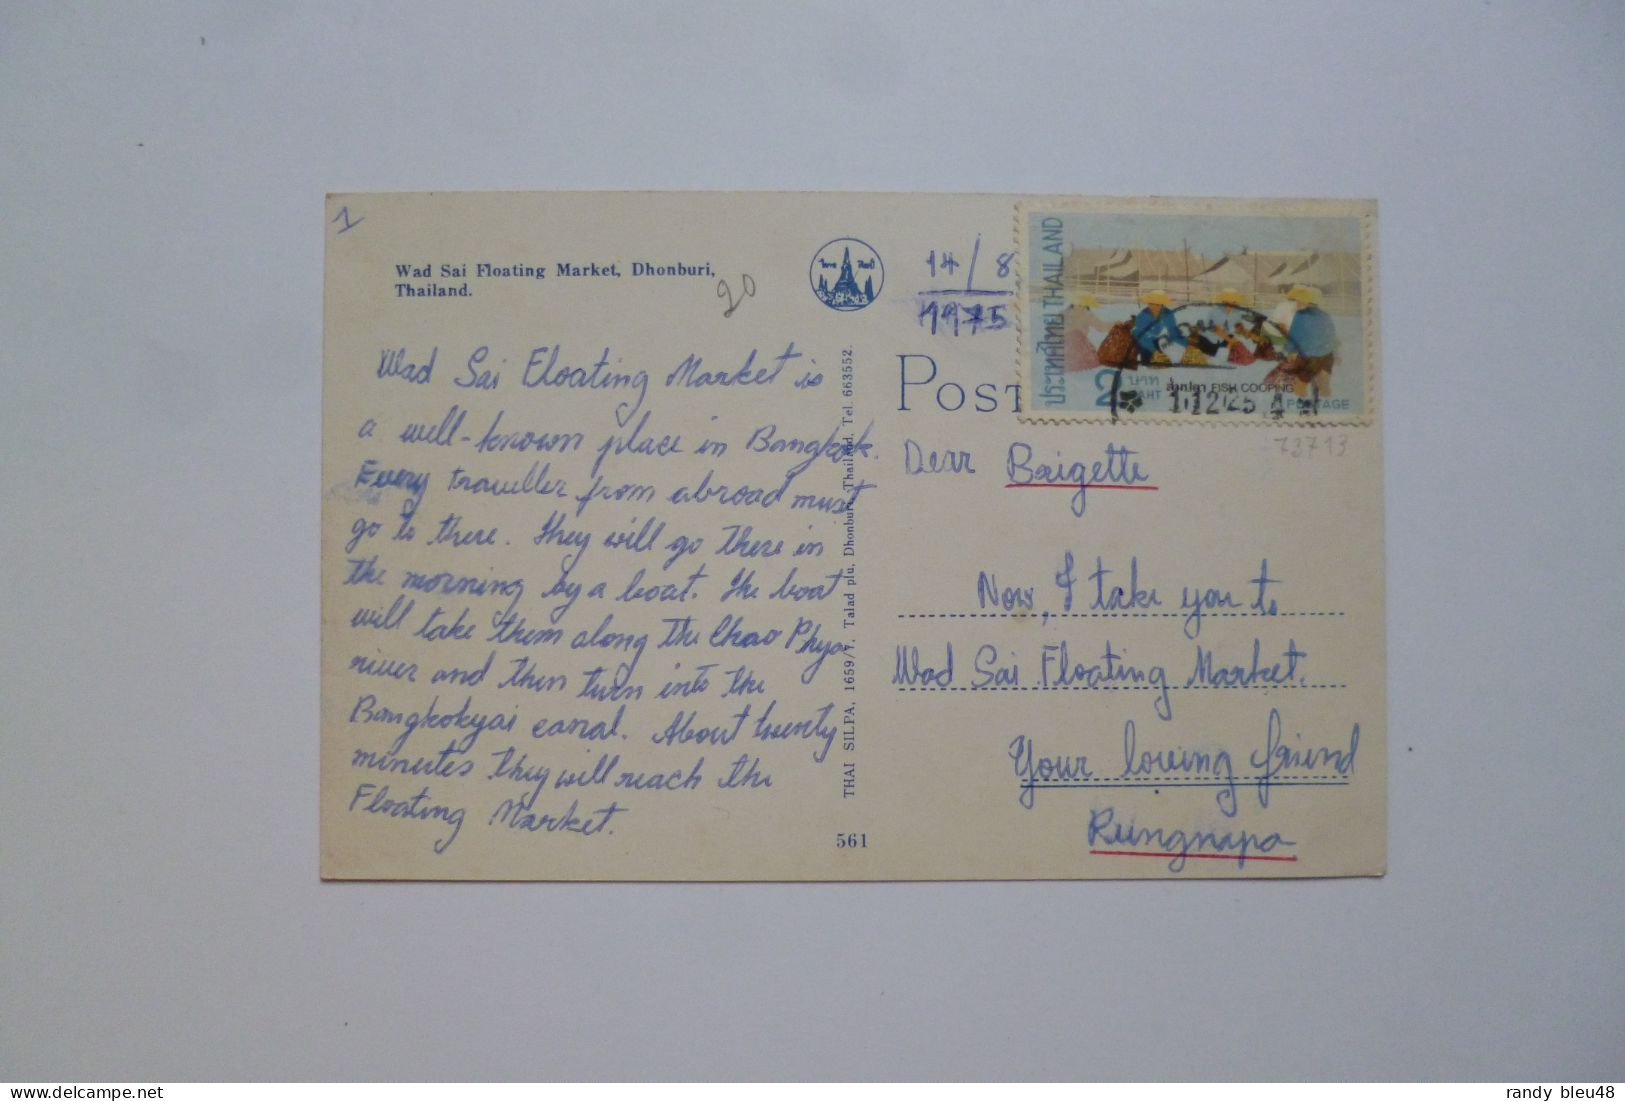 1
Wad Sai Floating Market, Dhonburi,
Thailand.
20
Wad Sai Floating Market is
a well-known place in Bangkok.
Every traveller from abroad must
go to there. They will go there in
the morning by a boat. The boat
will take them along the Chao Phya
river and then turn into the
Bangkokyai canal. About twenty
minutes they will reach the
Floating Market.
THAI SILPA, 1659/7. Talad plu, Dhonburi, Thailand. Tel. 663552.
561
14/8
1975
POST
ประเทศไทย THAILAND
2 บาท
BAHT
FISH COOPING
POSTAGE
73713
Dear Brigette
Now, I take you to
Wad Sai Floating Market.
Your loving friend
Rungnapa
delcampe.net
randy bleu48